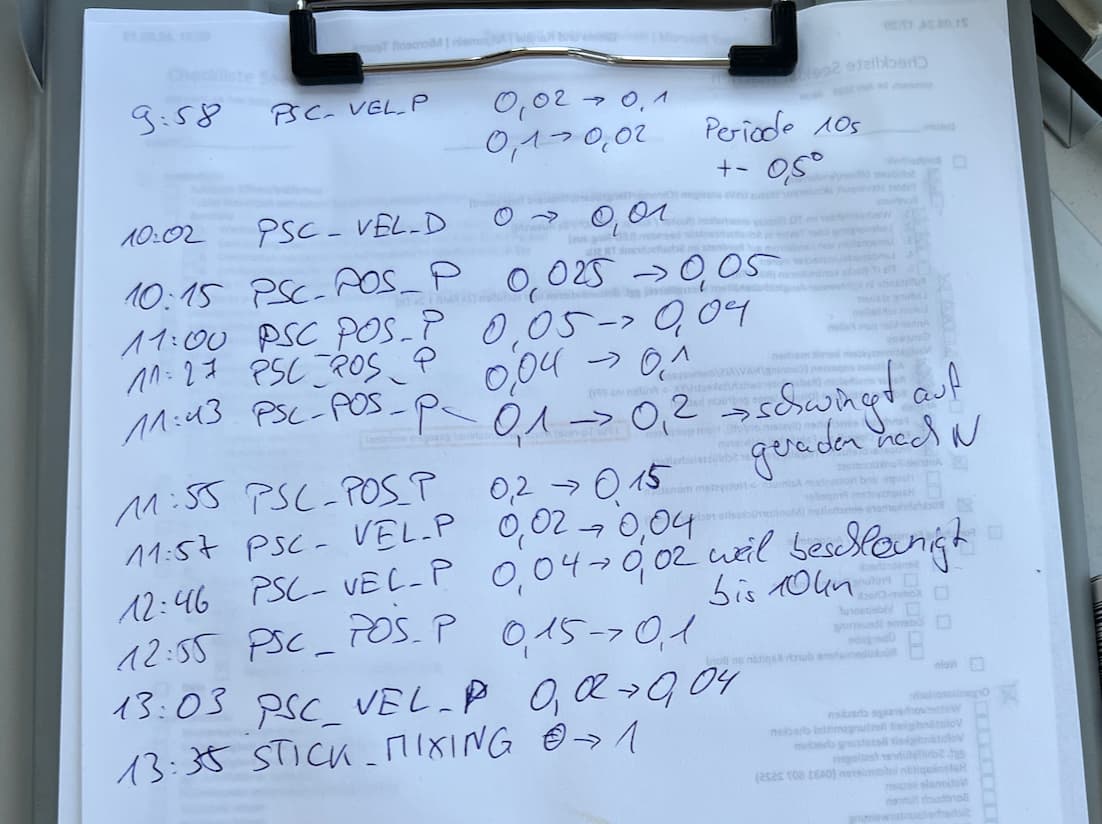 9:58 PSC_VEL_P 0,02 → 0,1
0,1 → 0,02 Periode 10s
+- 0,5°
10:02 PSC_VEL_D 0 → 0,01
10:15 PSC_POS_P 0,025 → 0,05
11:00 PSC_POS_P 0,05 → 0,04
11:27 PSC_POS_P 0,04 → 0,1
11:43 PSC_POS_P 0,1 → 0,2 → schwingt auf
geraden nach N
11:55 PSC_POS_P 0,2 → 0,15
11:57 PSC_VEL_P 0,02 → 0,04
12:46 PSC_VEL_P 0,04 → 0,02 weil beschleunigt
bis 10kn
12:55 PSC_POS_P 0,15 → 0,1
13:03 PSC_VEL_P 0,02 → 0,04
13:35 STICK_MIXING 0 → 1